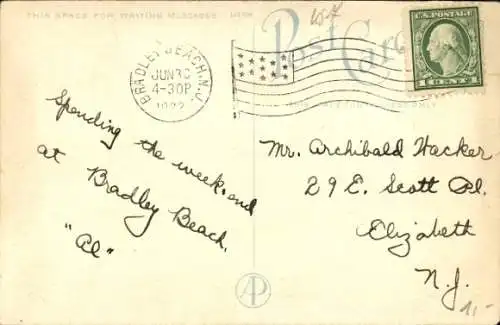 THIS SPACE FOR WRITING MESSAGES HERE
Post Card
BRADLEY BEACH, N.J.
JUN 30
4-30P
1922
U.S. POSTAGE
1 CENT 1
Spending the week, end
at Bradley Beach.
"Al"
Mr. Archibald Hacker
29 E. Scott Pl.
Elizabeth
N.J.
AP